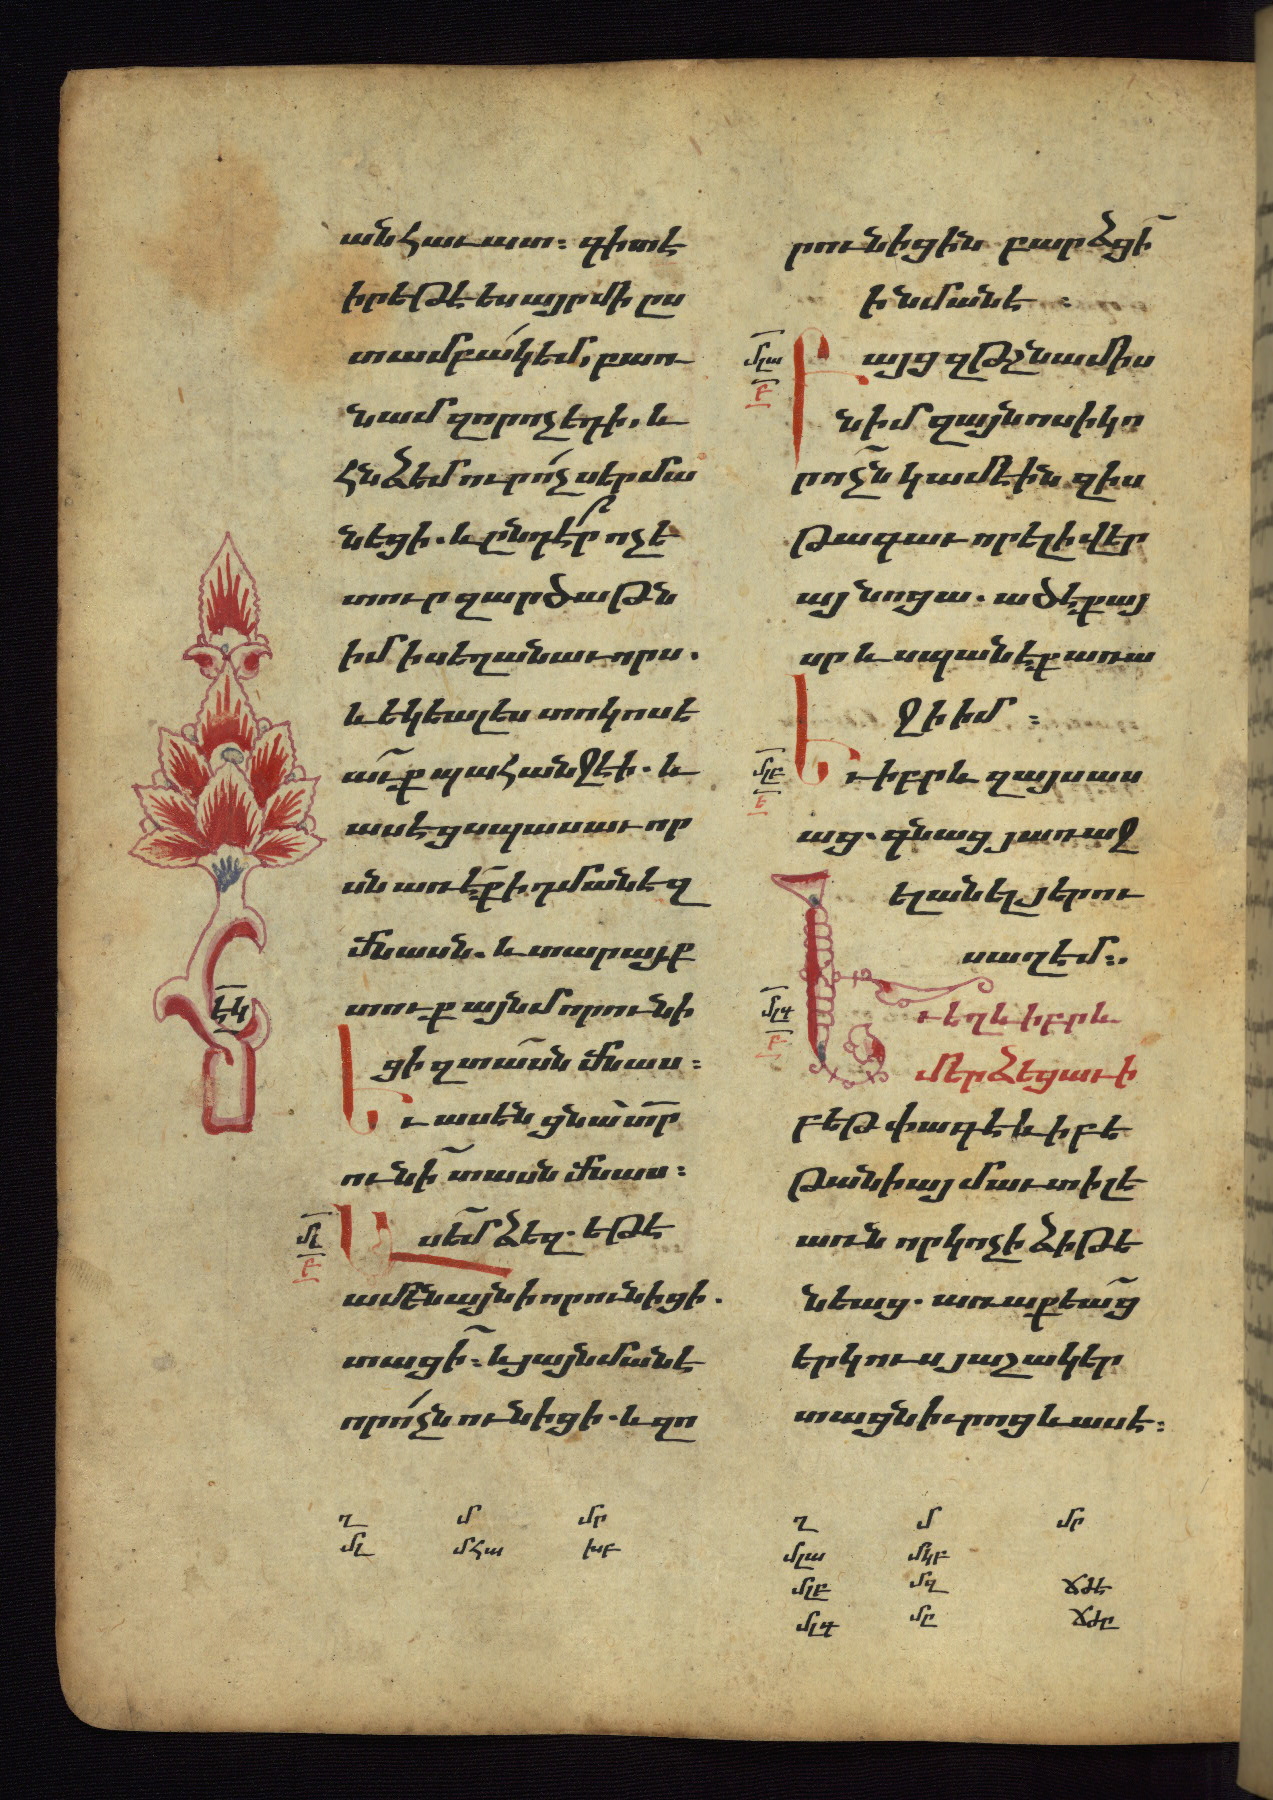 ան հաւատ։ գիտէ
իր եթէ ես այր մի ըս
տամբակ եմ, բառ
նամ զոր ոչ եդի, և
հնձեմ ուր ոչ սերմա
նեցի. և ընդէր ոչ ե
տուր զարծաթն
իմ ի սեղանաւորս.
և եկեալ ես տոկոսե
աւք պահանջէի. և
ասէ ցսպասաւոր
սն առէք ի դմանէ զ
մնասն. և տարայք
տուք այնմ որ ունի
ցի զտասն մնաս։
Եւ ասեն ցնա տր
ունի տասն մնաս։
մլ
բ
Ասեմ ձեզ. եթէ
ամենայնի որ ունիցի.
տացի։ և յայնմանէ
որ ոչն ունիցի. և զո
էկ
րունիցին բարձցի
ի նմանէ։
մլա
բ
Բայց զթշնամիս
ն իմ զայնոսիկ ո
ր ոչն կամէին զիս
թագաւորել ի վեր
այ նոցա. ածէք այ
սր և սպանէք առա
ջի իմ։
մլբ
ե
Եւ իբրև զայս աս
աց. գնաց յառաջ
ելանել յերու
սաղեմ։.
մլգ
բ
Եւ եղև իբրև
մերձեցաւ ի
բեթփագէ և ի բե
թանիայ մաւտ ի լե
առն որ կոչի ձիթե
նեաց. առաքեաց
երկուս յաշակեր
տացն իւրոց և ասէ։
ղ մ մր
մլ մհա խբ
ղ մ մր
մլա մկբ
մլբ մղ ճժե
մլգ մը ճժը